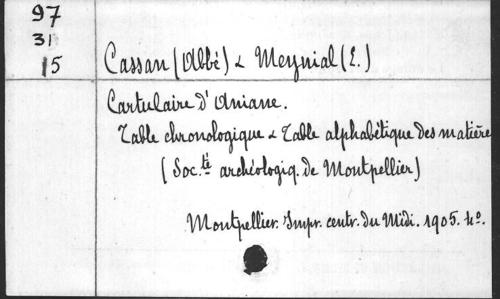 97
31
15
Cassan (Abbé) & Meynial (E.)
Cartulaire d'Aniane.
Table chronologique & Table alphabétique des matière
(Soc.té archéologiq. de Montpellier)
Montpellier. Impr. centr. du Midi. 1905. 4º.